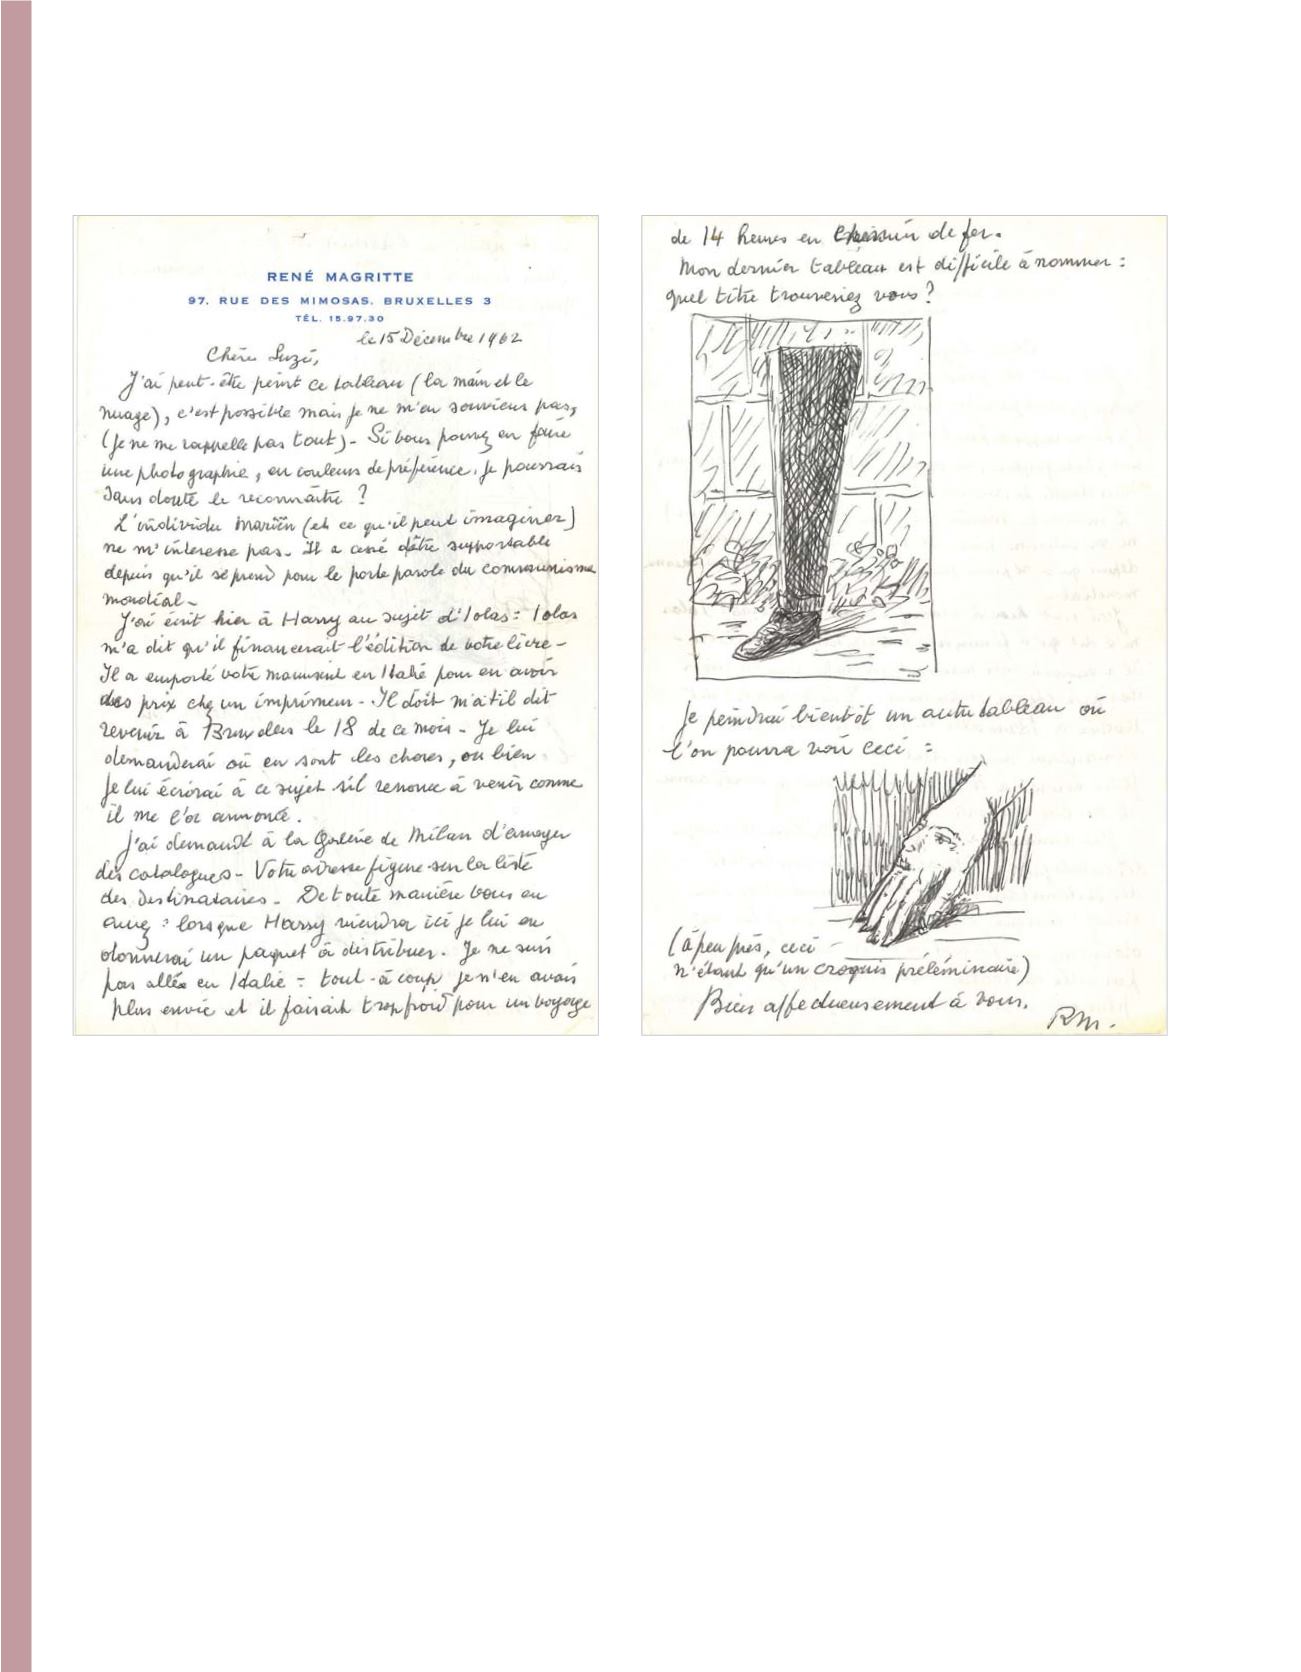 RENÉ MAGRITTE
97, RUE DES MIMOSAS. BRUXELLES 3
TÉL. 15.97.30
le 15 Décembre 1962
Chère Suzi,
J'ai peut-être peint ce tableau (la main et le
nuage), c'est possible mais je ne m'en souviens pas,
(je ne me rappelle pas tout) - Si vous pouvez en faire
une photographie, en couleurs de préférence, je pourrais
sans doute le reconnaître ?
L'individu Mariën (et ce qu'il peut imaginer)
ne m'intéresse pas - Il a cessé d'être supportable
depuis qu'il se prend pour le porte parole du communisme
mondial -
J'ai écrit hier à Harry au sujet d'Iolas : Iolas
m'a dit qu'il financerait l'édition de votre livre -
Il a emporté votre manuscrit en Italie pour en avoir
des prix chez un imprimeur - Il doit m'a t'il dit
revenir à Bruxelles le 18 de ce mois - Je lui
demanderai où en sont les choses, ou bien
je lui écrirai à ce sujet s'il renonce à venir comme
il me l'a annoncé.
J'ai demandé à la Galerie de Milan d'envoyer
des catalogues - Votre adresse figure sur la liste
des destinataires - De toute manière vous en
aurez : lorsque Harry viendra ici je lui en
donnerai un paquet à distribuer. Je ne suis
pas allé en Italie : tout-à-coup je n'en avais
plus envie et il faisait trop froid pour un voyage
de 14 heures en chemin de fer.
Mon dernier tableau est difficile à nommer :
quel titre trouveriez vous ?
Je peindrai bientôt un autre tableau où
l'on pourra voir ceci :
(à peu près, ceci -
n'étant qu'un croquis préléminaire)
Bien affectueusement à vous.
RM.